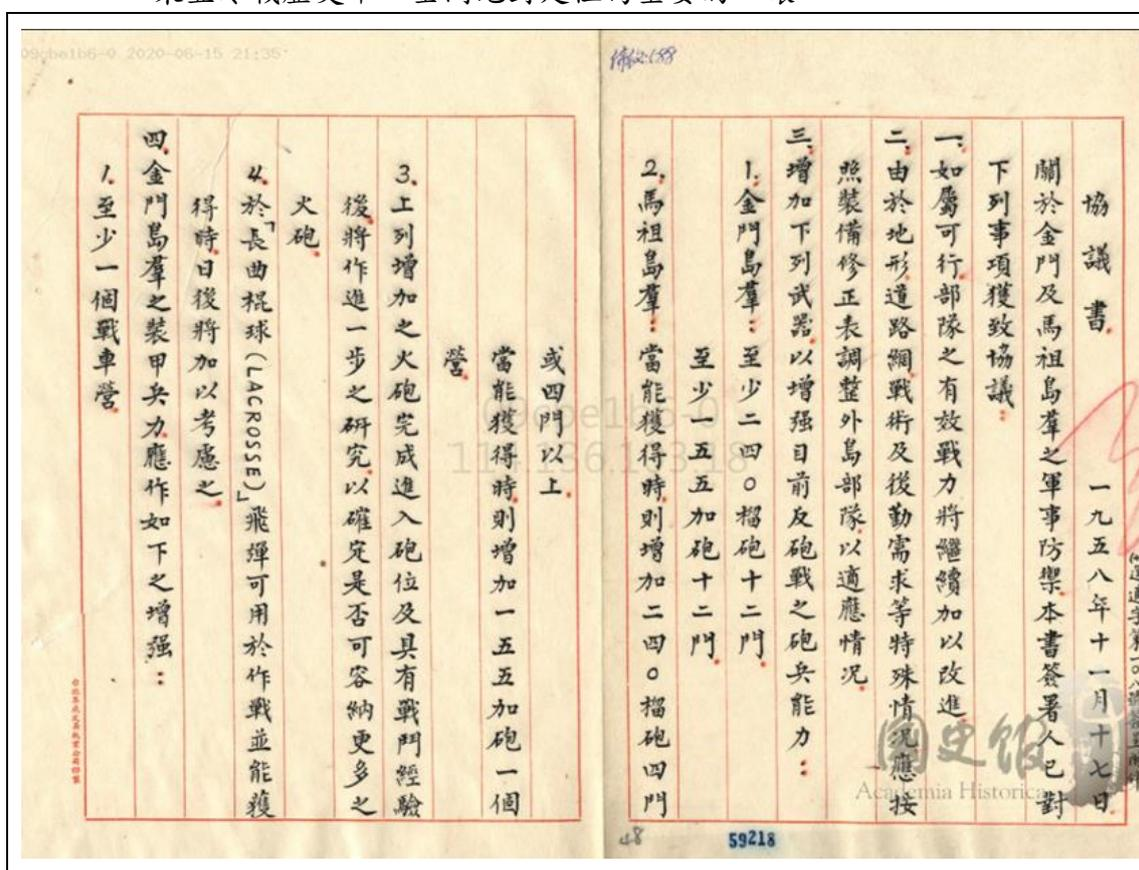 09cbe1b6-0 2020-06-15 21:35
協議書 一九五八年十一月十七日
關於金門及馬祖島羣之軍事防禦本書簽署人已對
下列事項獲致協議:
一、如屬可行部隊之有效戰力將繼續加以改進
二、由於地形道路網戰術及後勤需求等特殊情況應按
照裝備修正表調整外島部隊以適應情況
三、增加下列武器以增强目前反砲戰之砲兵能力:
1. 金門島羣:至少二四〇榴砲十二門
至少一五五加砲十二門
2. 馬祖島羣:當能獲得時則增加二四〇榴砲四門
或四門以上
當能獲得時則增加一五五加砲一個
營
3. 上列增加之火砲完成進入砲位及具有戰鬥經驗
後將作進一步之研究以確定是否可容納更多之
火砲
4. 於「長曲棍球(LACROSSE)」飛彈可用於作戰並能獲
得時日後將加以考慮之
四、金門島羣之裝甲兵力應作如下之增强:
1. 至少一個戰車營
國史館
Academia Historica
48
59218